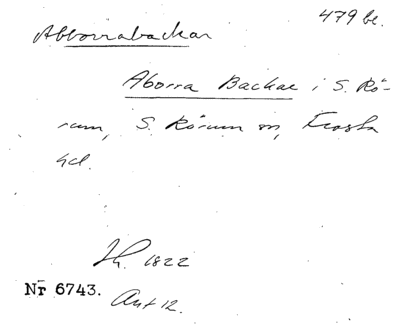 479 be.
Abborrabackar
Aborra Backae i S. Rö-
rum, S. Rörum sn, Frosta
hd.
1822
Nr 6743.
Ant 12.